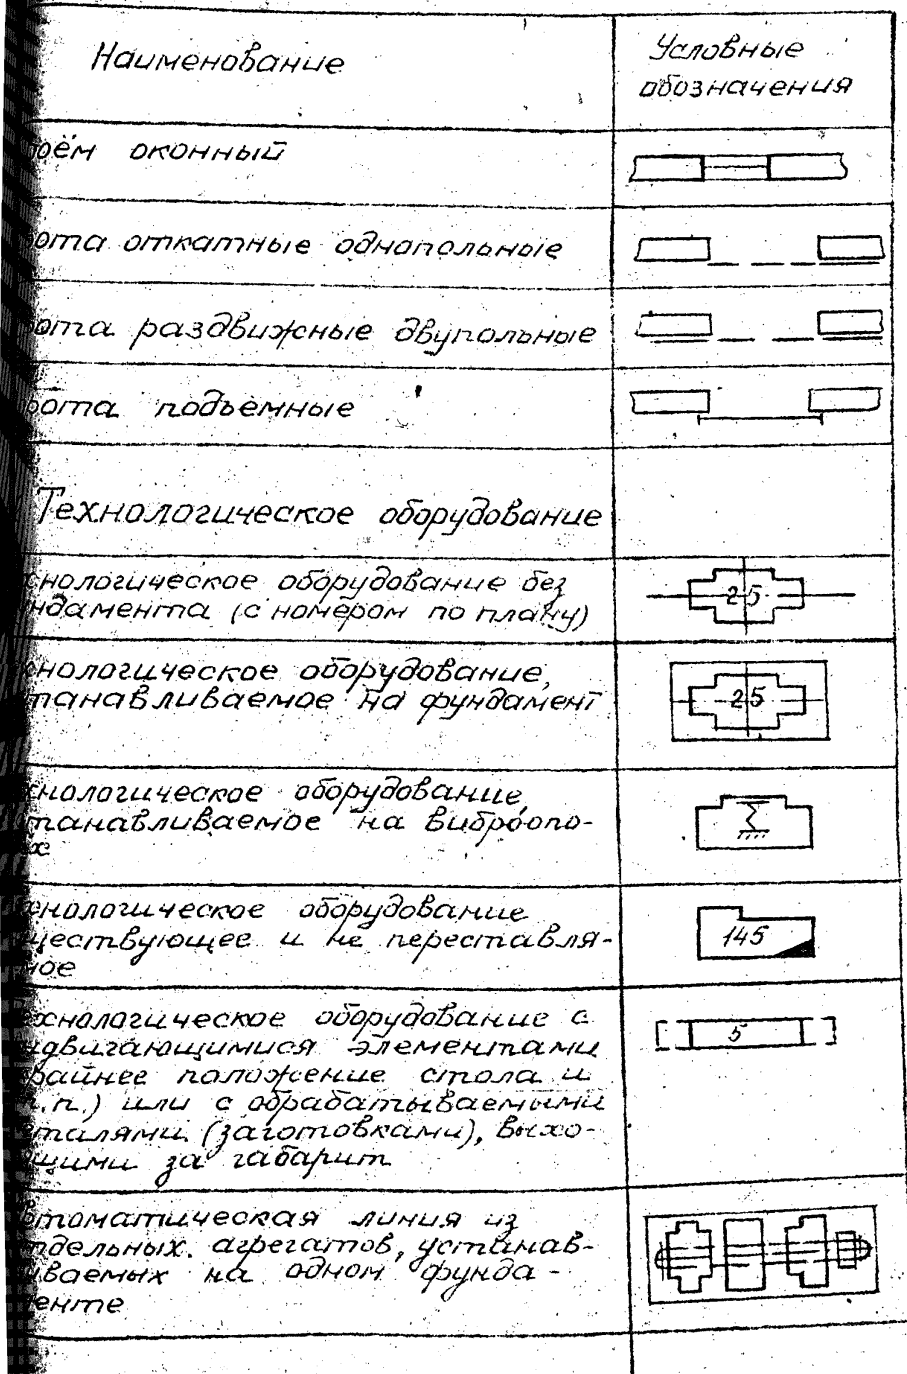 Наименование
Условные
обозначения
оём оконный
ота откатные однопольные
ота раздвижные двупольные
рота подъемные
Технологическое оборудование
хнологическое оборудование без
ндамента (с номером по плану)
25
хнологическое оборудование,
танавливаемое на фундамент
25
хнологическое оборудование,
танавливаемое на виброопо-
х
хнологическое оборудование
ществующее и не переставля-
мое
145
хнологическое оборудование с
двигающимися элементами
райнее положение стола и
.п.) или с обрабатываемыми
талями (заготовками), выхо-
щими за габарит
5
втоматическая линия из
тдельных агрегатов, устанав-
иваемых на одном фунда-
менте